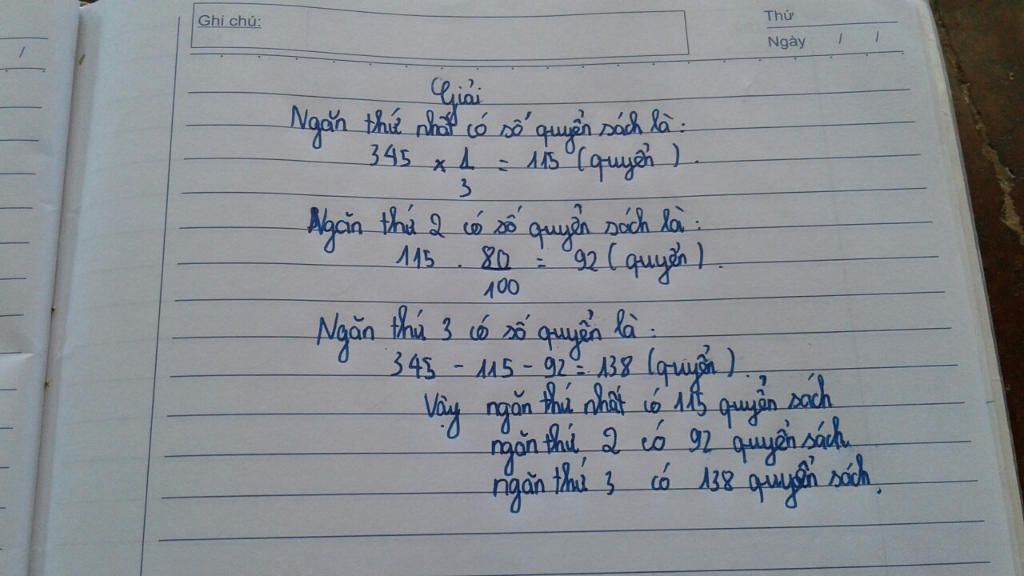 Ghi chú:
Thứ
Ngày / /
/
Giải
Ngăn thứ nhất có số quyển sách là:
345 × 1/3 = 115 (quyển).
Ngăn thứ 2 có số quyển sách là:
115 . 80/100 = 92 (quyển).
Ngăn thứ 3 có số quyển là:
345 - 115 - 92 = 138 (quyển).
Vậy ngăn thứ nhất có 115 quyển sách
ngăn thứ 2 có 92 quyển sách
ngăn thứ 3 có 138 quyển sách.